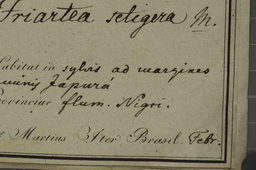 Iriartea setigera M.
Habitat in sylvis ad margines
fluminis Japurá
Provinciae flum. Nigri.
Martius Iter Brasil. Febr.